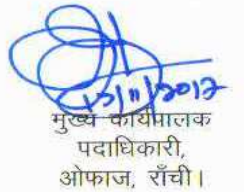 13/11/2017
मुख्य कार्यपालक
पदाधिकारी,
ओफाज, राँची।